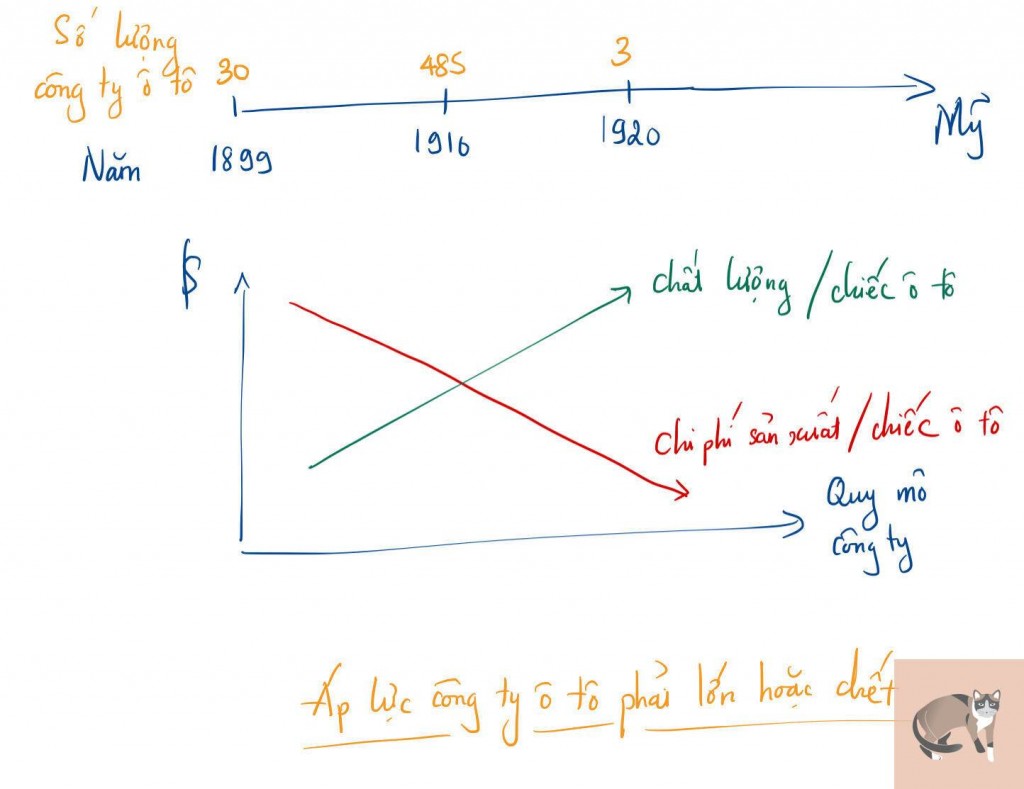 Số lượng
công ty ô tô 30 485 3
Năm 1899 1910 1920 Mỹ
$
chất lượng / chiếc ô tô
chi phí sản xuất / chiếc ô tô
Quy mô
công ty
Áp lực công ty ô tô phải lớn hoặc chết